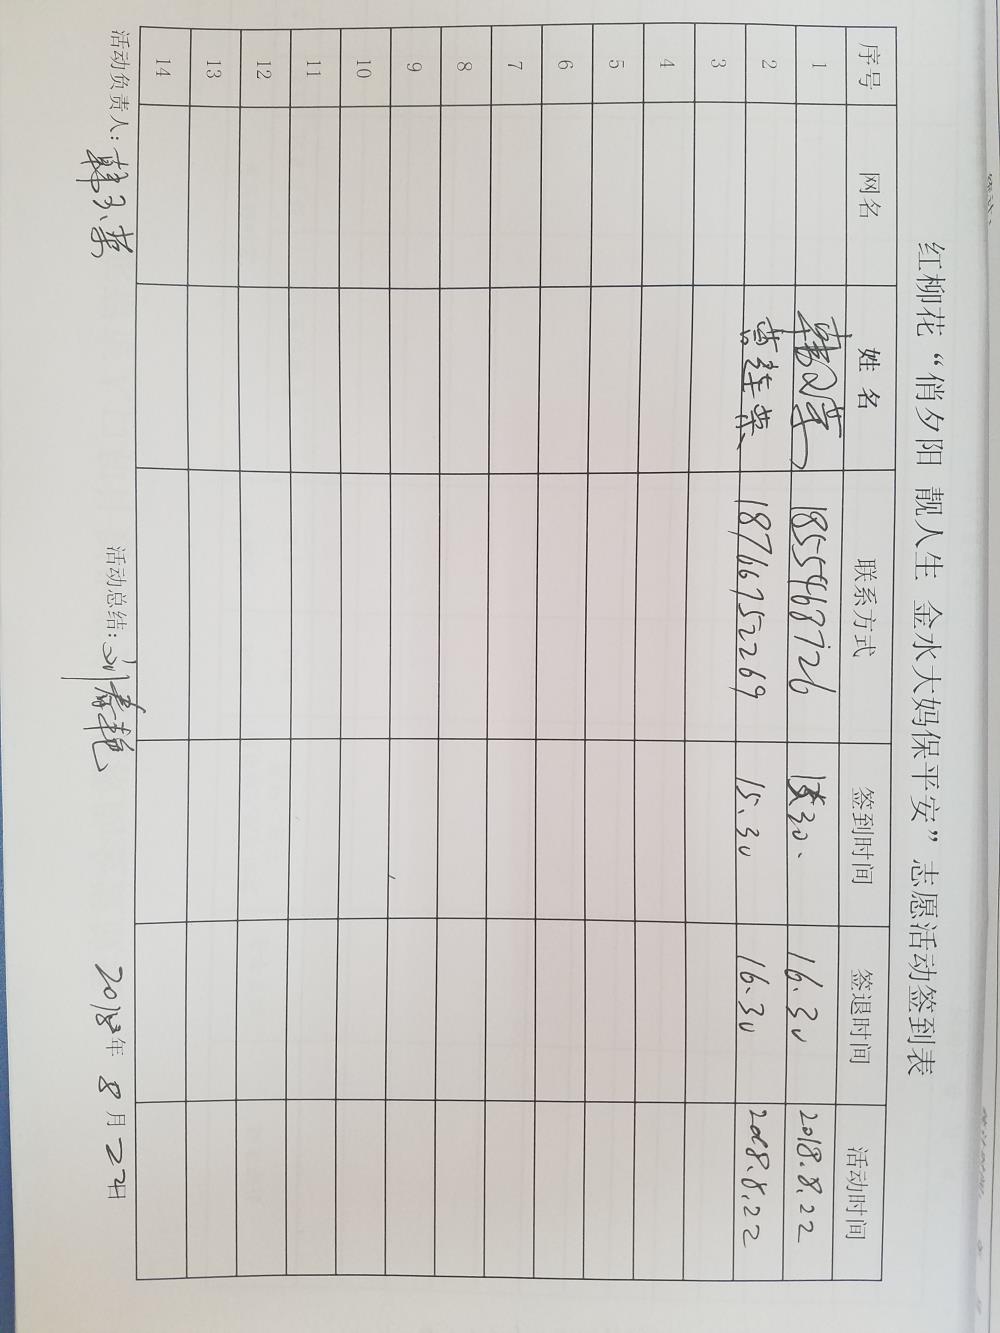 红柳花“俏夕阳 靓人生 金水大妈保平安”志愿活动签到表
序号 网名 姓 名 联系方式 签到时间 签退时间 活动时间
1 18554687126 15.30. 16.30 2018.8.22
2 18766752269 15.30 16.30 2018.8.22
3
4
5
6
7
8
9
10
11
12
13
14
活动负责人: 活动总结:刘春艳 2018年 8月22日